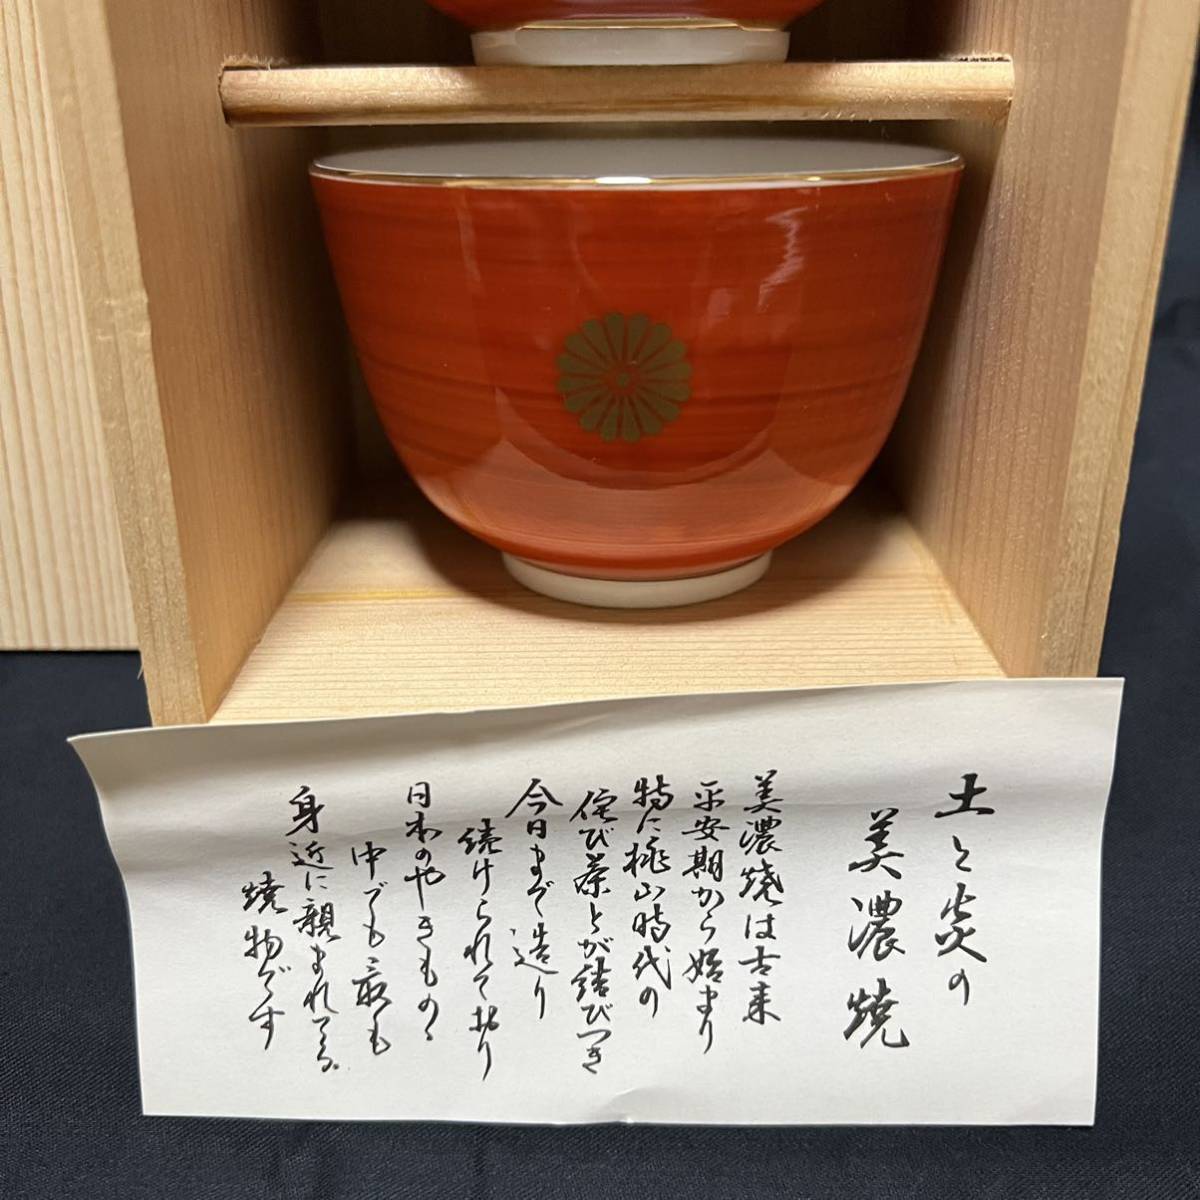 土と炎の
美濃焼
美濃焼は古来
平安期から始まり
特に桃山時代の
侘び茶とが結びつき
今日まで造り
続けられて北り
日本のやきものゝ
中でも最も
身近に親まれてる
焼物です